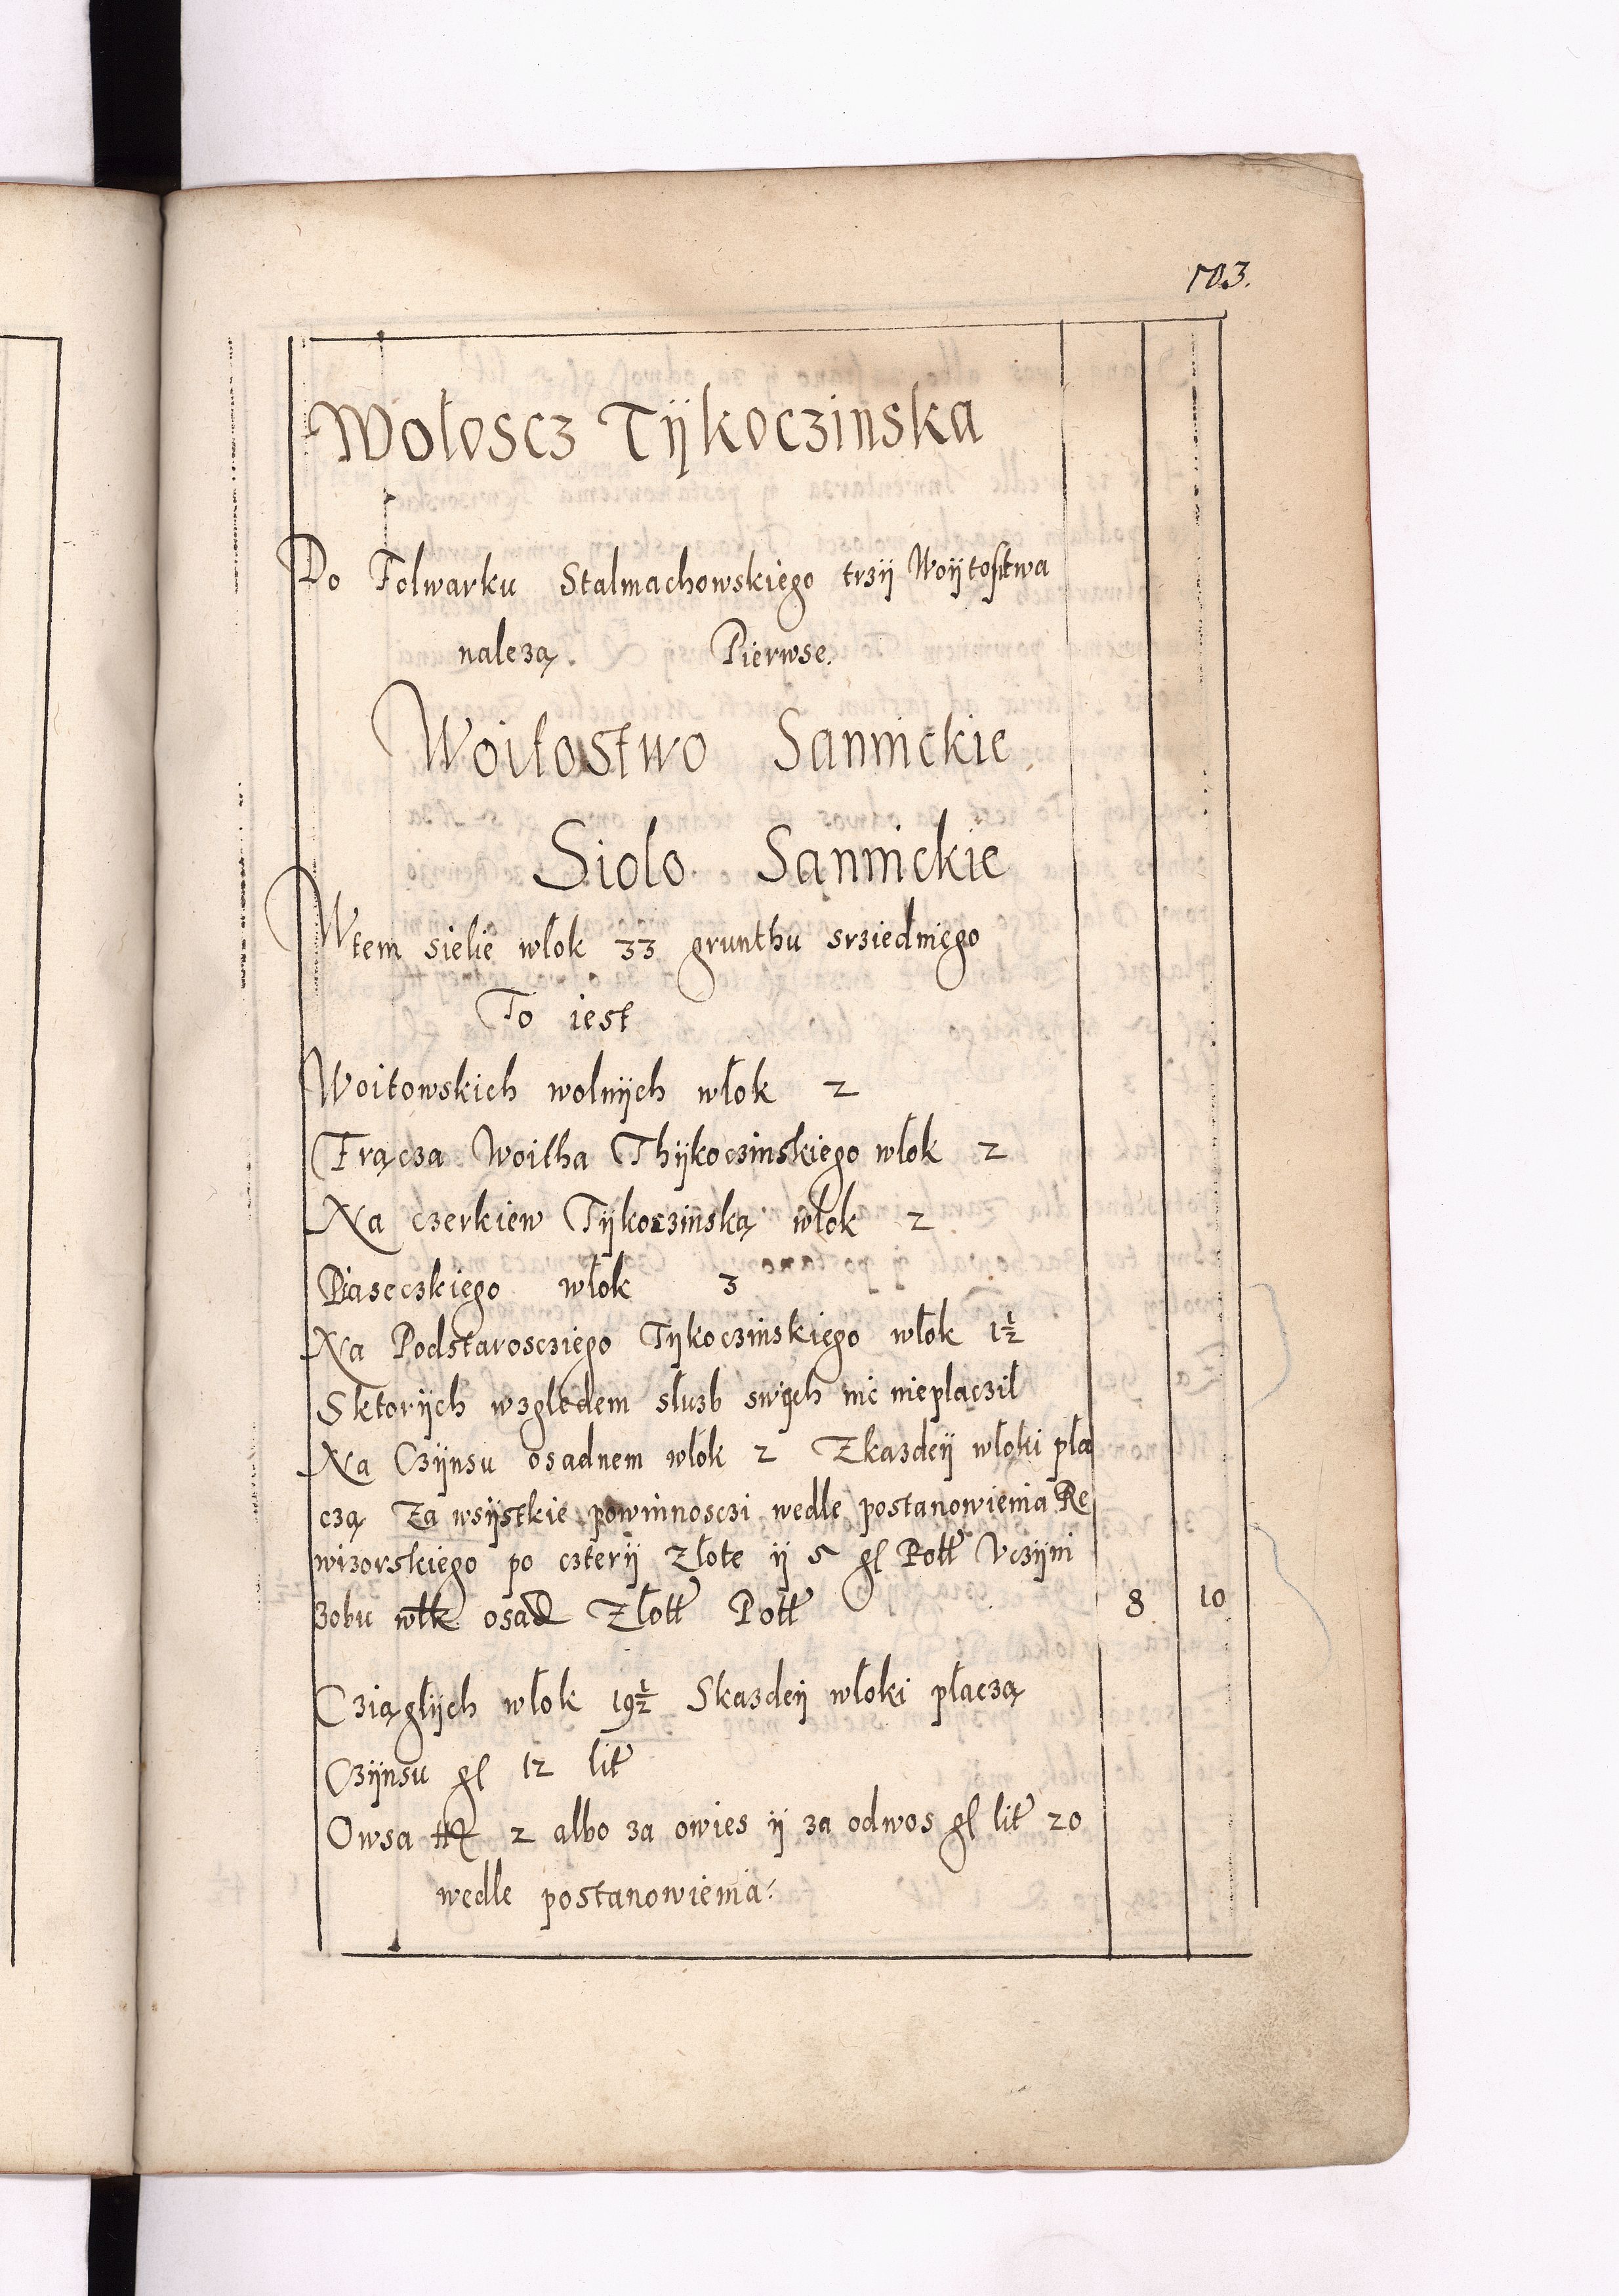 103.
Wołoscz Tÿkoczinska
Do Folwarku Stalmachowskiego trzÿ Woÿtostwa
należą Pierwse.
Woitostwo Sannickie.
Siolo Sannickie
Wtem sielie włok 33 grunthu srziedniego
To iest
Woitowskich wolnÿch włok 2
Frącza Woitha Thÿkoczinskiego włok 2
Na czerkiew Tÿkoczinską włok 2
Piaseczkiego włok 3
Na Podstarosciego Tÿkoczinskiego włok 1½
Sktorÿch względem służb swÿch nic nieplacził
Na Czÿnsu osadnem włok 2 Zkazdeÿ włoki pła
czą Za wsÿstkie powinnosczi wedle postanowienia Re
wizorskiego po czterÿ złote ÿ 5 gl Połł Uczÿni
zobu włk osad Złott Połł 8 10
Cziągłÿch włok 19½ Skazdeÿ włoki płaczą
Czÿnsu gl 12 lit
Owsa 2 albo za owies ÿ za odwos gl lit 20
wedle postanowienia